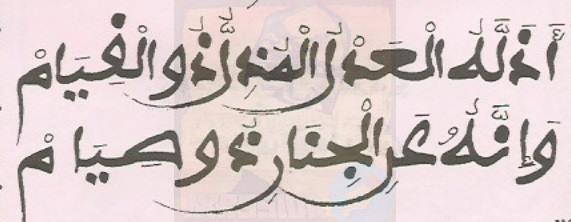 أَذَلَّهُ الْعَدْلُ الْمُذِلُّ ذُو الْقِيَامْ
وَإِنَّهُ عَنِ الْجِنَانِ ذُو صِيَامْ